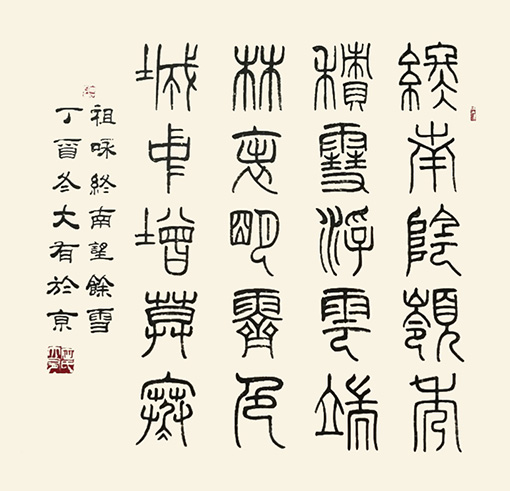 終南陰嶺秀
積雪浮雲端
林表明霽色
城中增暮寒
祖咏終南望餘雪
丁酉冬大有於京